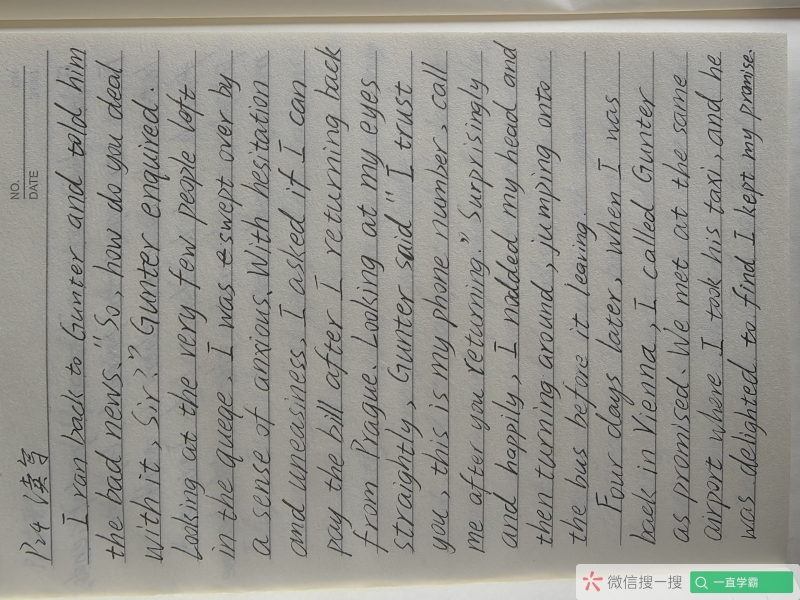 NO.
DATE
P24 读写
I ran back to Gunter and told him
the bad news. "So, how do you deal
with it, Sir?" Gunter enquired.
Looking at the very few people left
in the quege, I was swept over by
a sense of anxious. With hesitation
and uneasiness, I asked if I can
pay the bill after I returning back
from Prague. Looking at my eyes
straightly, Gunter said "I trust
you, this is my phone number, call
me after you returning." Surprisingly
and happily, I nodded my head and
then turning around, jumping onto
the bus before it leaving.
Four days later, when I was
back in Vienna, I called Gunter
as promised. We met at the same
airport where I took his taxi, and he
was delighted to find I kept my promise.
微信搜一搜
一直学霸